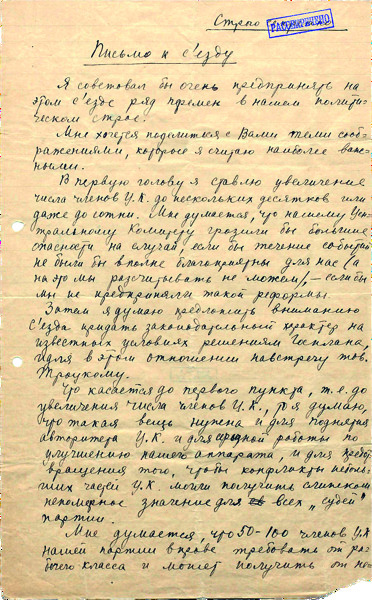 Строго
РАССЕКРЕЧЕНО
Письмо к с'езду
Я советовал бы очень предпринять на
этом с'езде ряд перемен в нашем полити-
ческом строе.
Мне хочется поделиться с Вами теми сооб-
ражениями, которые я считаю наиболее важ-
ными.
В первую голову я ставлю увеличение
числа членов Ц.К. до нескольких десятков или
даже до сотни. Мне думается, что нашему Цен-
тральному Комитету грозили бы большие
опасности на случай, если бы течение событий
не было бы вполне благоприятны для нас (а
на это мы расчитывать не можем), – если бы
мы не предприняли такой реформы.
Затем я думаю предложить вниманию
с'езда придать законодательный характер на
известных условиях решениям Госплана,
идя в этом отношении навстречу тов.
Троцкому.
Что касается до первого пункта, т.е. до
увеличения числа членов Ц.К., то я думаю,
что такая вещь нужна и для поднятия
авторитета Ц.К. и для работы по
улучшению нашего аппарата, и для предот-
вращения того, чтобы конфликты неболь-
ших частей Ц.К. могли получить слишком
непомерное значение для всех "судеб"
партии.
Мне думается, что 50-100 членов Ц.К.
наша партия вправе требовать от ра-
бочего класса и может получить от не-